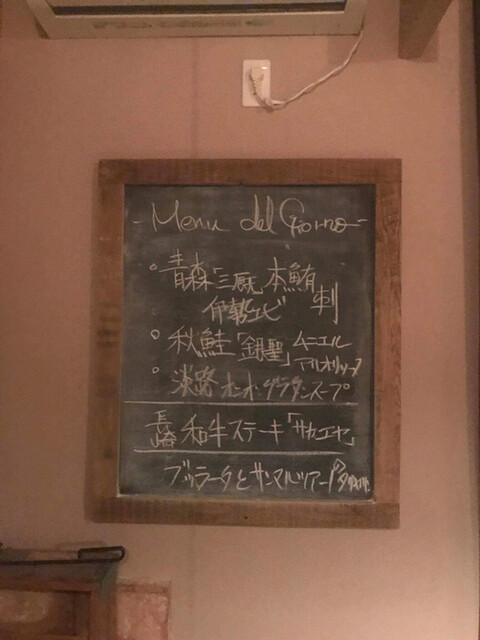 -Menu del Giorno-
• 青森「三厩」本鮪
伊勢エビ 刺
• 秋鮭「銀聖」ムニエル
• 淡路 オニオングラタンスープ
長崎 和牛ステーキ「サカエヤ」
ブッラータとサンマルツァーノ